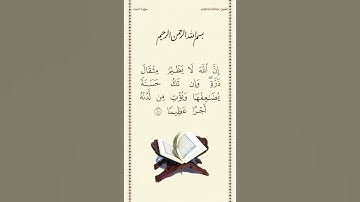 بسم الله الرحمن الرحيم
إِنَّ ٱللَّهَ لَا يَظْلِمُ مِثْقَالَ
ذَرَّةٍۖ وَإِن تَكُ حَسَنَةً
يُضَٰعِفْهَا وَيُؤْتِ مِن لَّدُنْهُ
أَجْرًا عَظِيمًا ٤٠